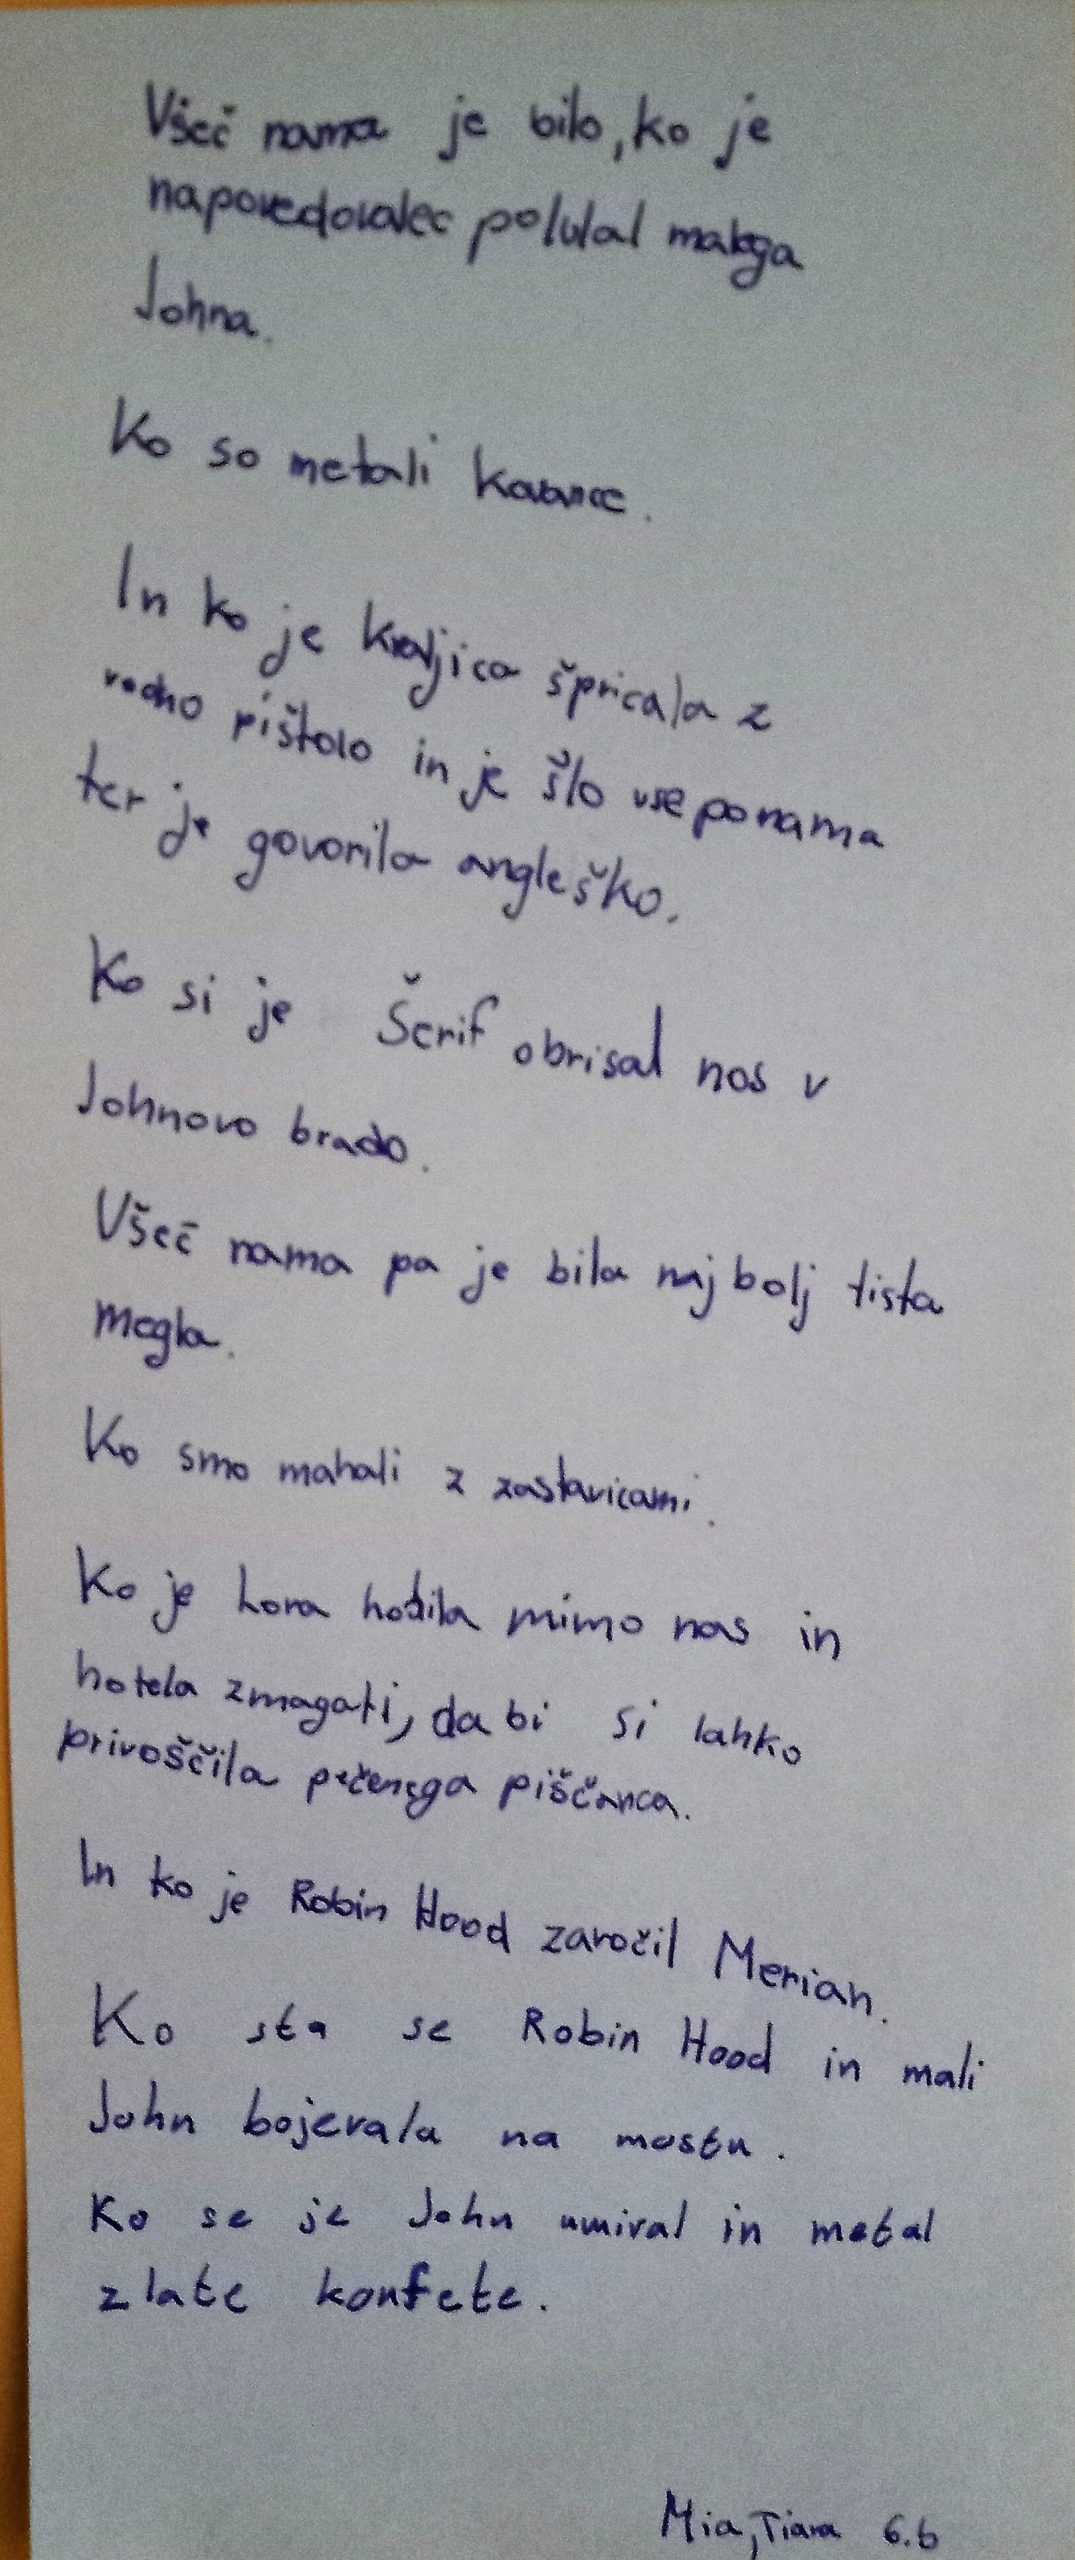 Všeč nama je bilo, ko je
napovedovalec polulal malega
Johna.
Ko so metali
In ko je kraljica špricala z
vodno pištolo in je šlo vse po nama
ter je govorila angleško.
Ko si je Šerif obrisal nos v
Johnovo brado.
Všeč nama pa je bila najbolj tista
megla.
Ko smo mahali z zastavicami.
Ko je Lora hodila mimo nas in
hotela zmagati, da bi si lahko
privoščila pečenega piščanca.
In ko je Robin Hood zaročil Merian.
Ko sta se Robin Hood in mali
John bojevala na mostu.
Ko se je John umiral in metal
zlate konfete.
Mia, Tiana 6.b